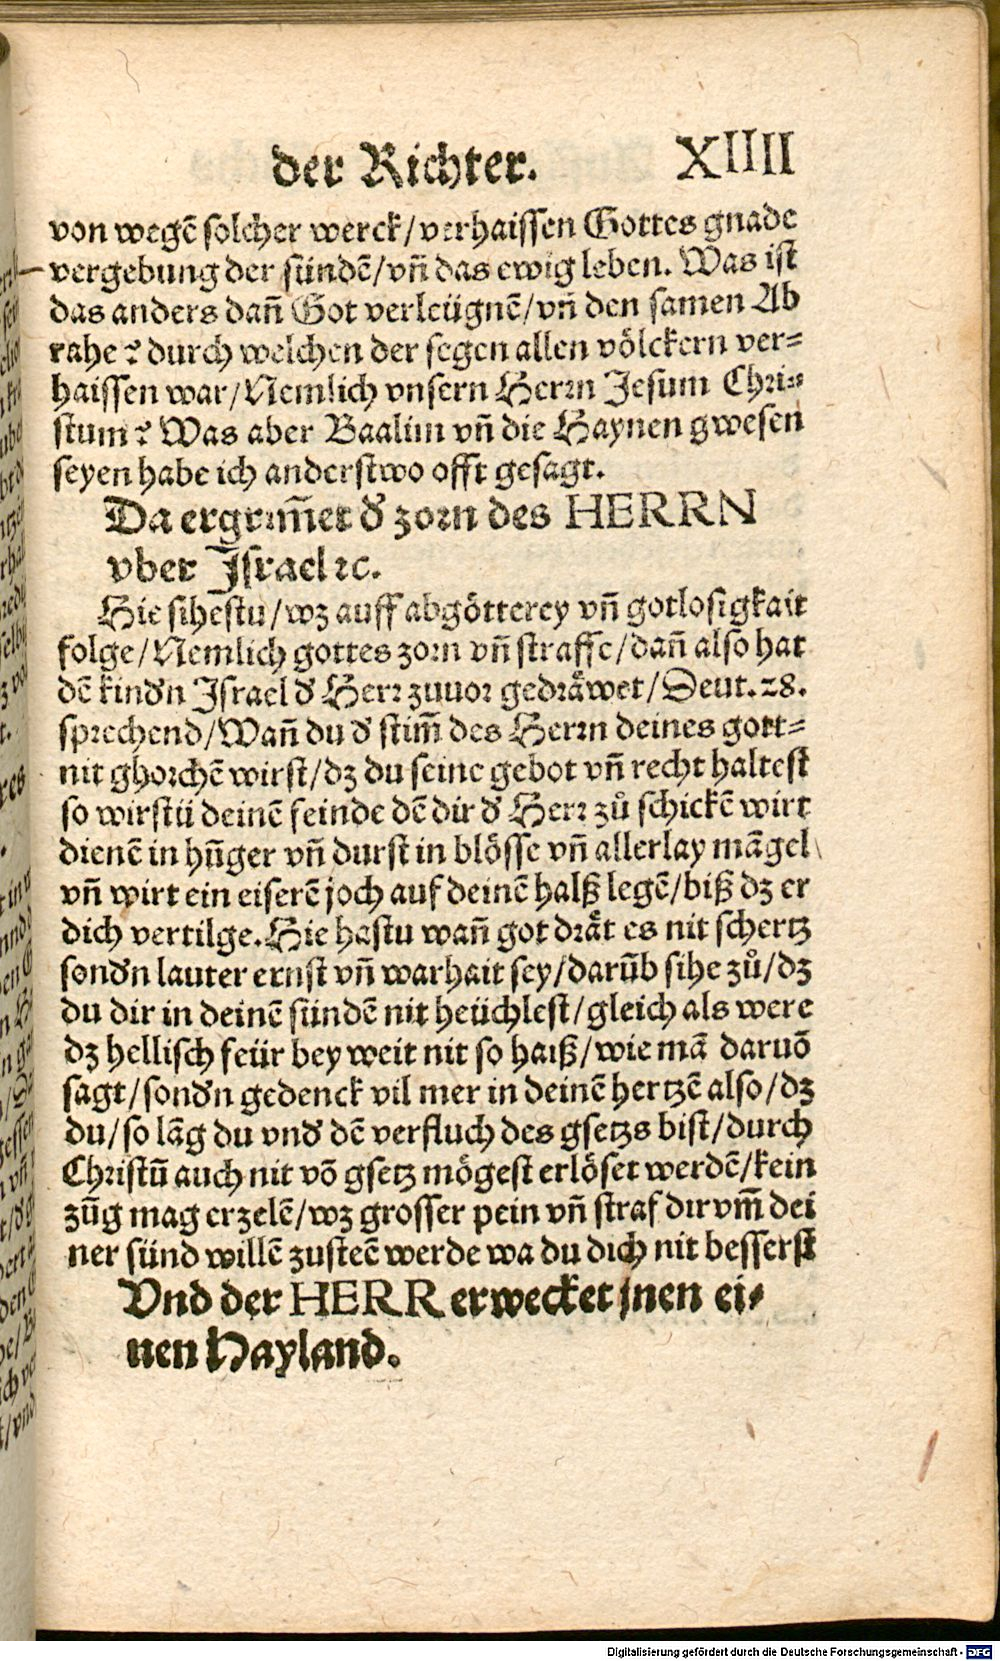 der Richter. XIIII
von wegē solcher werck/verhaissen Gottes gnade
vergebung der sündē/vñ das ewig leben. Was ist
das anders dañ Got verleügnē/vñ den samen Ab
rahe? durch welchen der segen allen völckern ver-
haissen war/Nemlich vnsern Herrn Jesum Chri-
stum? Was aber Baalim vñ die Haynen gwesen
seyen habe ich anderstwo offt gesagt.
Da ergrim̃et d' zorn des HERRN
vber Israel ꝛc.
Hie sihestu/wz auff abgötterey vñ gotlosigkait
folge/Nemlich gottes zorn vñ straffe/dañ also hat
dē kind'n Israel d' Herr zuuor gedräwet/Deut.28.
sprechend/Wañ du d' stim̃ des Herrn deines gott-
nit ghorchē wirst/dz du seine gebot vñ recht haltest
so wirstū deinē feinde dē dir d' Herr zů schickē wirt
dienē in hūger vñ durst in blösse vñ allerlay māgel
vñ wirt ein eiserē joch auf deinē halß legē/biß dz er
dich vertilge. Hie hastu wañ got drät es nit schertz
sond'n lauter ernst vñ warhait sey/darūb sihe zů/dz
du dir in deinē sündē nit heüchlest/gleich als were
dz hellisch feür bey weit nit so haiß/wie mā daruō
sagt/sond'n gedenck vil mer in deinē hertzē also/dz
du/so lāg du vnd' dē verfluch des gsetzs bist/durch
Christū auch nit vō gsetz mögest erlöset werdē/kein
zūg mag erzelē/wz grosser pein vñ straf dir vm̃ dei
ner sünd willē zusteē werde wa du dich nit besserst
Vnd der HERR erwecket jnen ei-
nen Hayland.
Digitalisierung gefördert durch die Deutsche Forschungsgemeinschaft - DFG